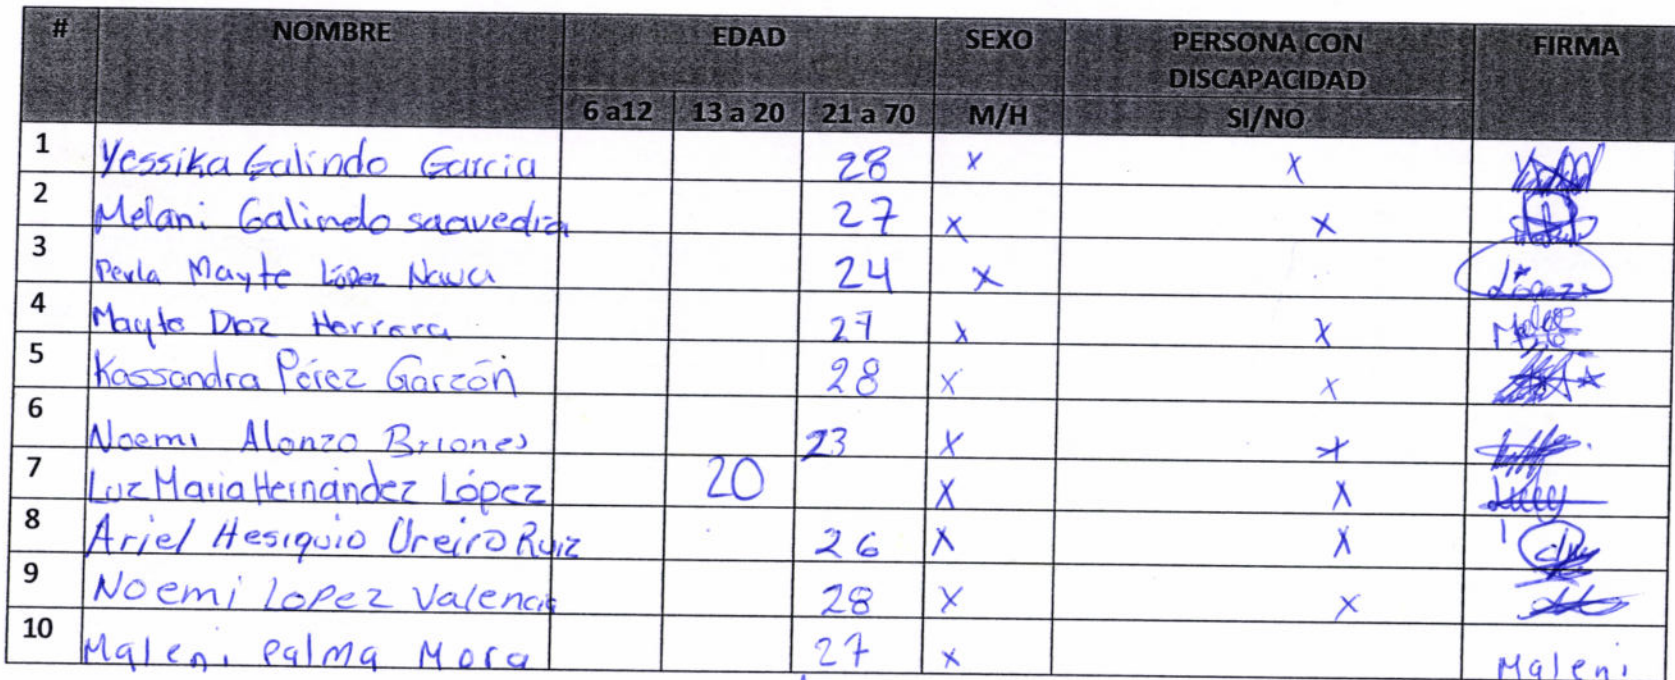 # NOMBRE EDAD SEXO PERSONA CON DISCAPACIDAD FIRMA
6 a12 13 a 20 21 a 70 M/H SI/NO
1 Yessika Galindo Garcia 28 x x
2 Melani Galindo saavedra 27 x x
3 Perla Mayte López Nava 24 x
4 Mayte Diaz Herrera 27 x x
5 Kassandra Pérez Garzón 28 x x
6 Noemi Alonzo Briones 23 x x
7 Luz Maria Hernández López 20 x x
8 Ariel Hesiquio Ureiro Ruiz 26 x x
9 Noemi Lopez Valencia 28 x x
10 Maleni Palma Mora 27 x Maleni